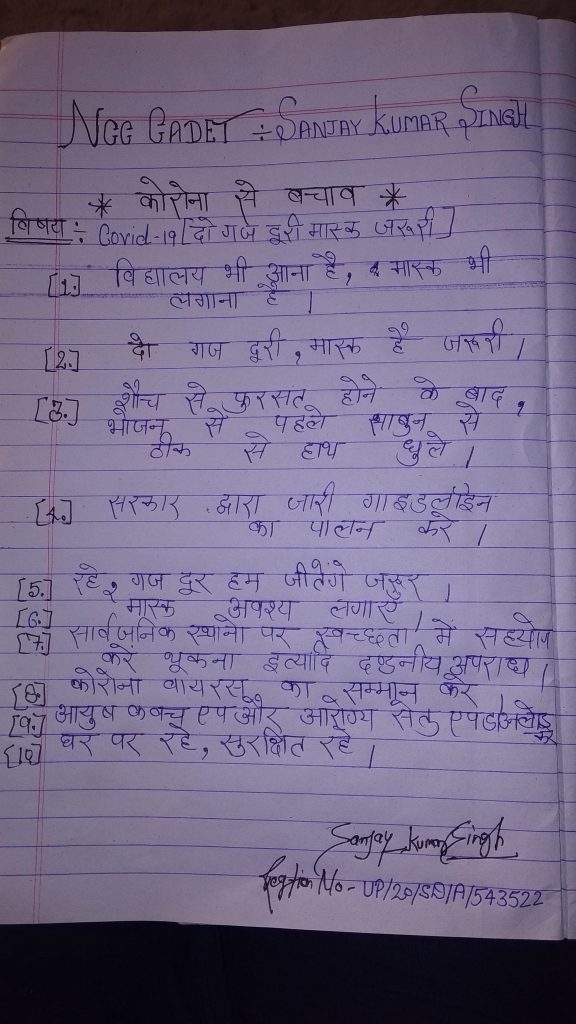 NCC CADET ÷ SANJAY KUMAR SINGH
* कोरोना से बचाव *
विषय ÷ Covid-19 [दो गज दूरी मास्क जरूरी]
[1.] विद्यालय भी आना है, मास्क भी
लगाना है ।
[2.] दो गज दूरी, मास्क है जरूरी ।
[3.] शौच से फुरसत होने के बाद,
भोजन से पहले साबुन से
ठीक से हाथ धुले ।
[4.] सरकार द्वारा जारी गाइडलाइन
का पालन करे ।
[5.] रहे, गज दूर हम जीतेंगे जरूर ।
[6.] मास्क अवश्य लगाएं ।
[7.] सार्वजनिक स्थानो पर स्वच्छता में सहयोग
करें थूकना इत्यादि दण्डनीय अपराध ।
[8.] कोरोना वायरस का सम्मान करे ।
[9.] आयुष कवच एप और आरोग्य सेतु एप डाउनलोड
करे
[10] घर पर रहे, सुरक्षित रहे ।
Sanjay Kumar Singh
No- UP/20/SD/A/543522